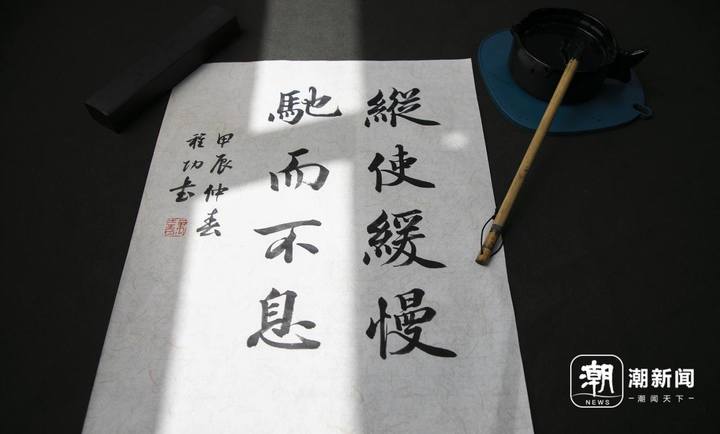 縱使緩慢
馳而不息
甲辰仲春
程功书
潮
NEWS
潮新闻
潮闻天下